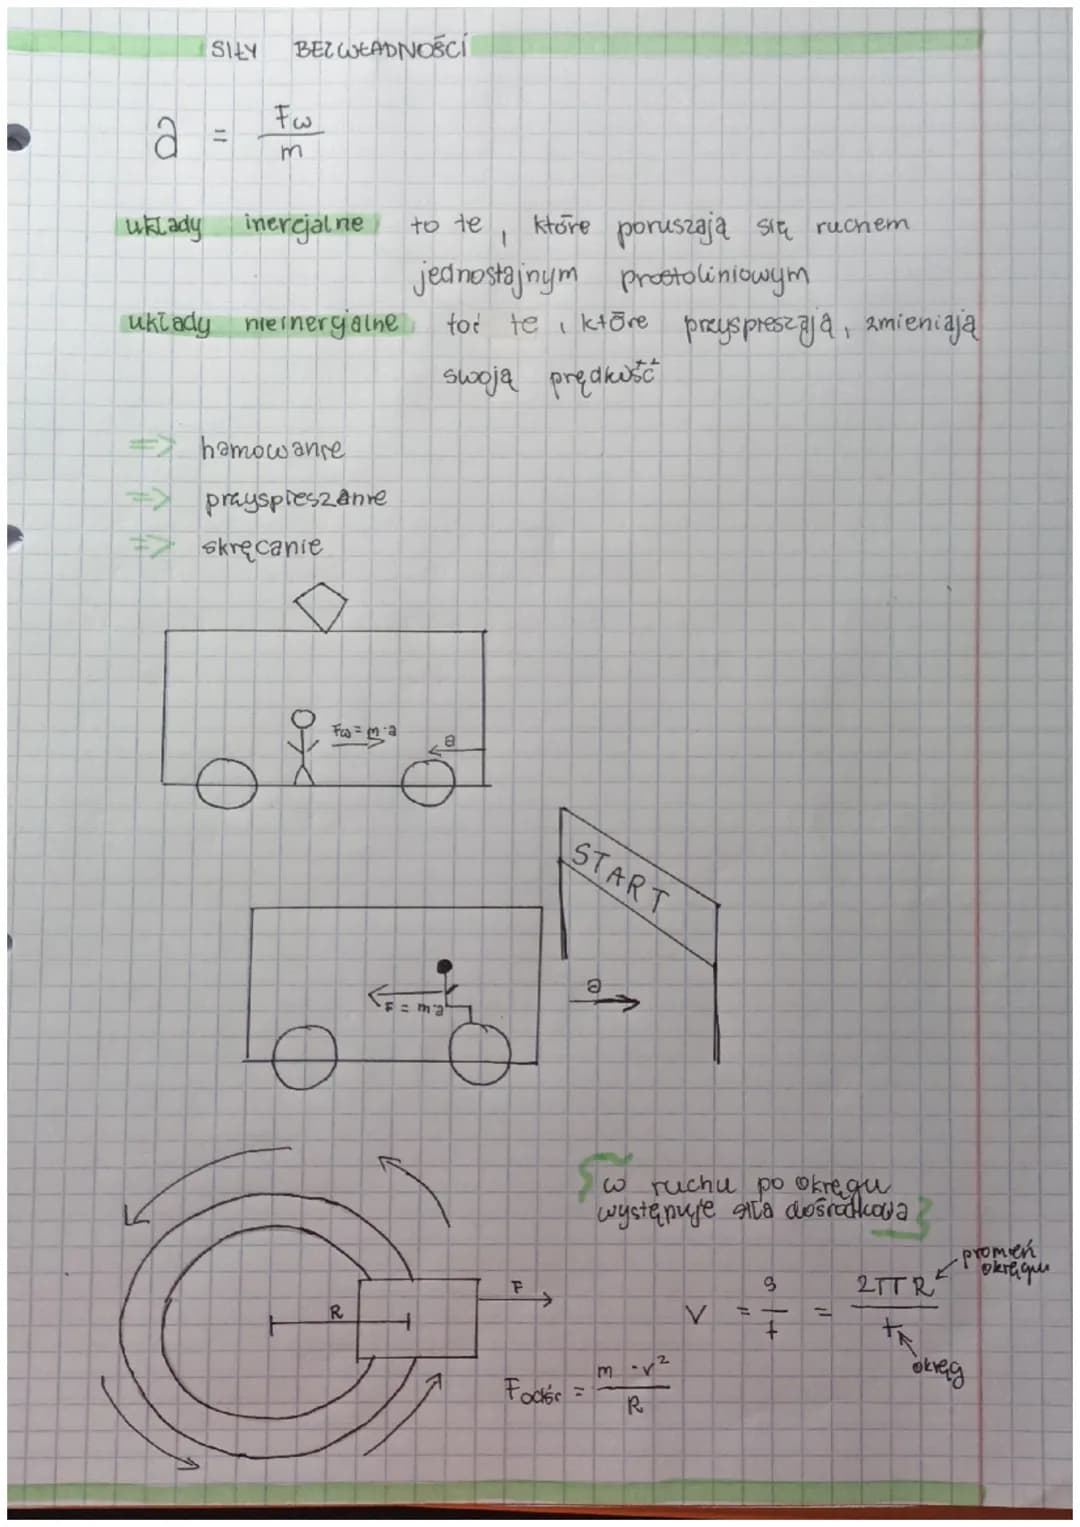 SIŁY BEZWŁADNOŚCI
a = Fw / m
układy inercjalne to te, które poruszają się ruchem
jednostajnym prostoliniowym
układy nieinercjalne to te, które przyspieszają, zmieniają
swoją prędkość
=> hamowanie
=> przyspieszanie
=> skręcanie
Fw = m·a
a
START
a
F = m·a
w ruchu po okręgu
występuje siła dośrodkowa
promień
okręgu
F
V = s / t = 2πR / t
R
okręg
Fodśr = m·v² / R